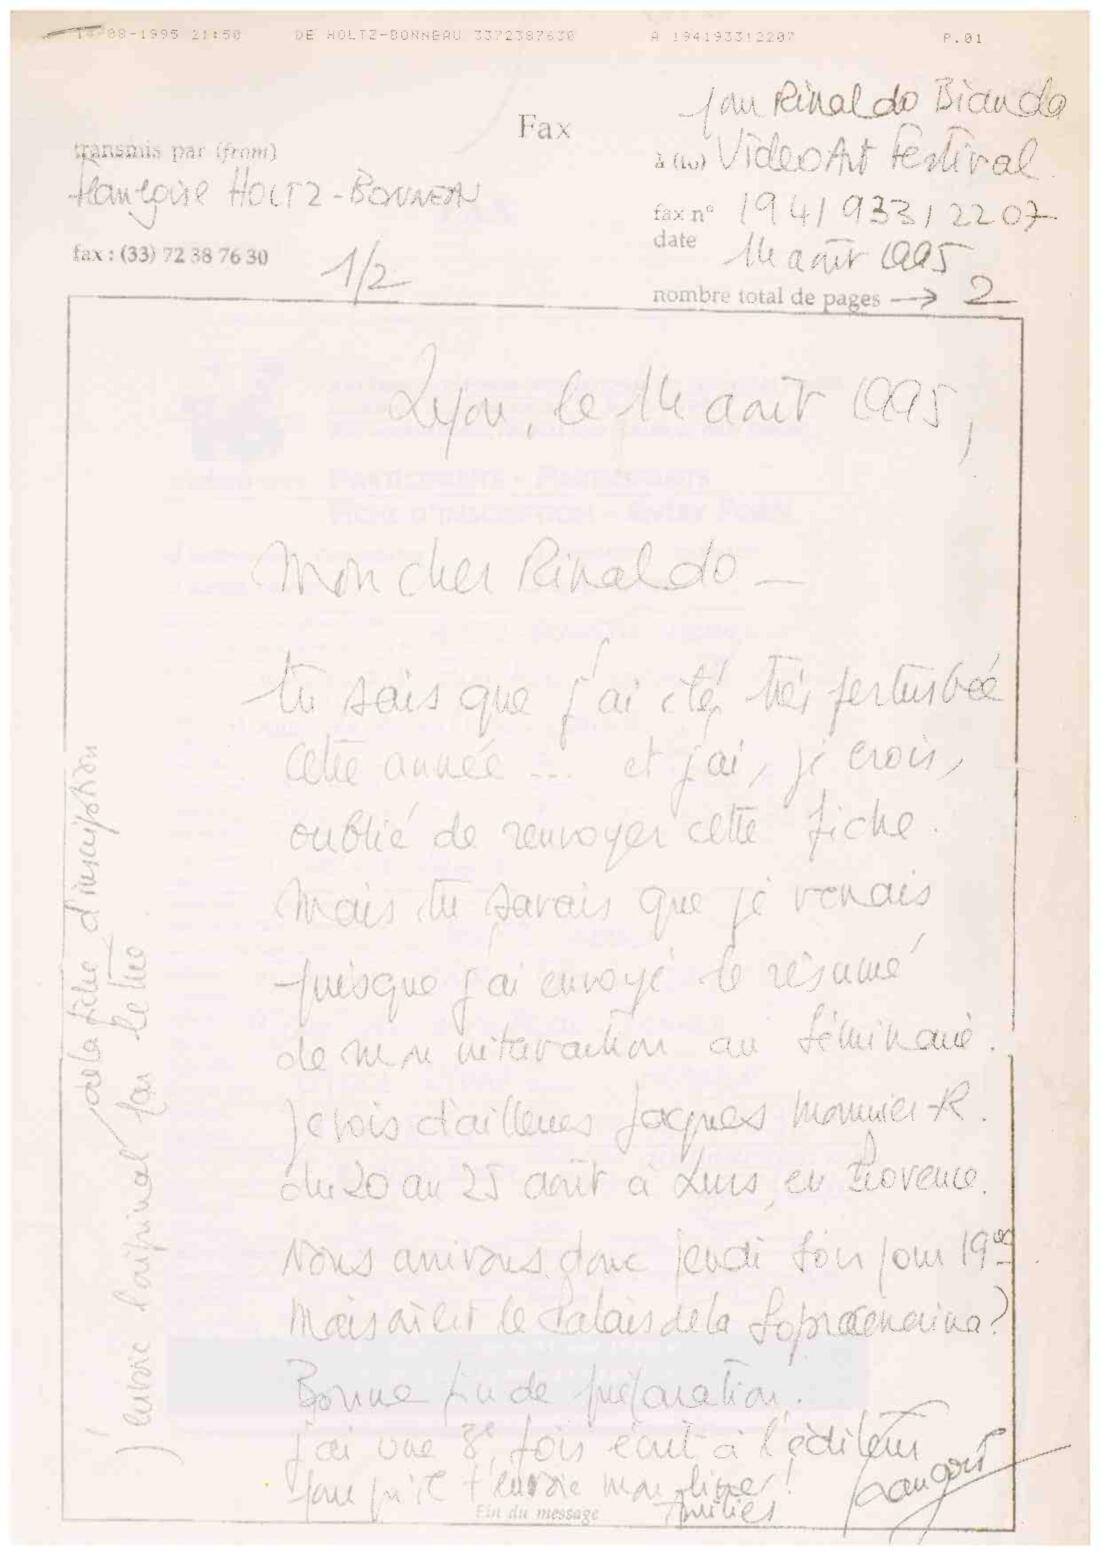 14-08-1995 21:50 DE HOLTZ-BONNEAU 3372387630 A 194193312207 P.01
Fax
pour Rinaldo Bianda
transmis par (from)
à (to) VideoArt Festival
Françoise HOLTZ-BONNEAU
fax n° 19 41 933 12207
fax : (33) 72 38 76 30
date 14 août 1995
1/2
nombre total de pages → 2
Lyon, le 14 août 1995,
Mon cher Rinaldo —
tu sais que j'ai été très perturbée
cette année ... et j'ai, je crois,
oublié de renvoyer cette fiche.
Mais tu savais que je venais
puisque j'ai envoyé le résumé
de mon intervention au séminaire.
Je vois d'ailleurs Jacques Monnier-R.
du 20 au 25 août à Lurs, en Provence.
Nous arrivons donc jeudi soir pour 19
Mais où est le Palais de la Sopracenerina?
Bonne fin de préparation.
J'ai une 3e fois écrit à l'éditeur
pour qu'il t'envoie mon livre!
Amitiés
Françoise
Fin du message
J'envoie l'original de la fiche d'inscription
par lettre